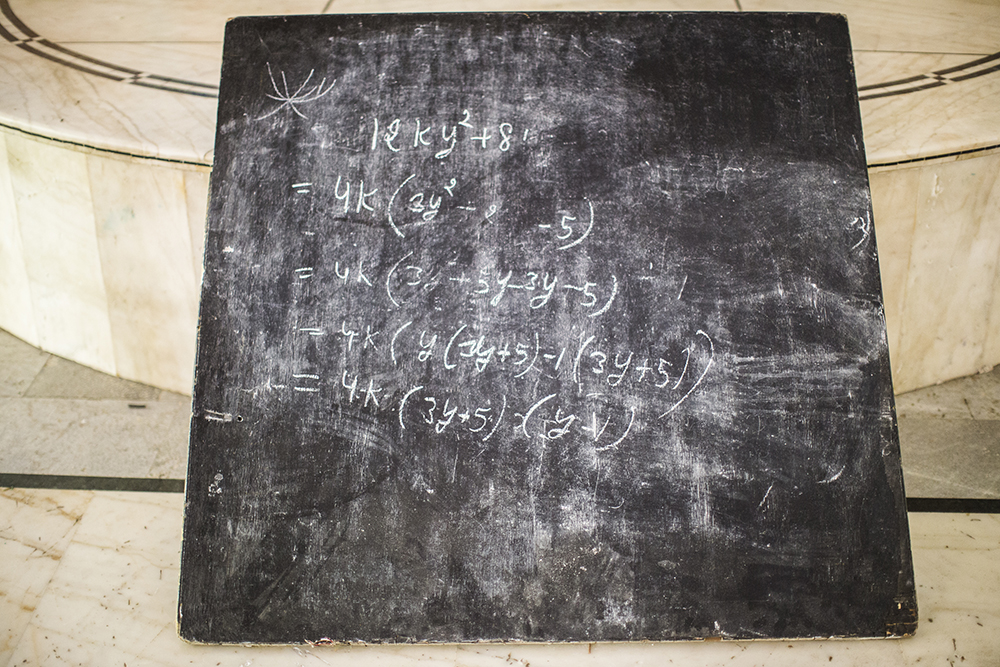 12ky²+8
= 4k (3y² - -5)
= 4k (3y + 5y-3y-5)
= 4k ( y (3y+5) -1 (3y+5) )
= 4k (3y+5) (y-1)